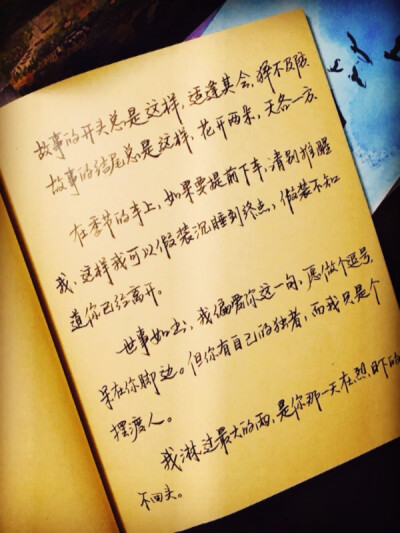 故事的开头总是这样,适逢其会,猝不及防
故事的结尾总是这样,花开两朵,天各一方
在季节的车上,如果要提前下车,请别推醒
我,这样我可以假装沉睡到终点,假装不知
道你已经离开。
世事如书,我偏爱你这一句,愿做个逗号
呆在你脚边。但你有自己的独者,而我只是个
摆渡人。
我淋过最大的雨,是你那一天在烈日下的
不回头。